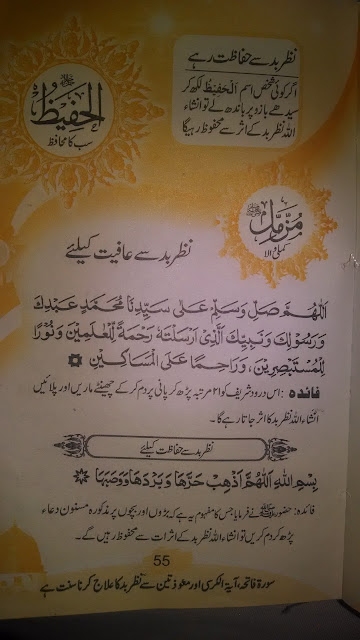 نظر بد سے حفاظت رہے
اگر کوئی شخص اسم اَلْحَفِیْظُ لکھ کر
سیدھے بازو پر باندھ لے تو انشاء
اللہ نظر بد کے اثر سے محفوظ رہیگا
الحفیظُ
سب کا محافظ
مُزَّمِّلٌ ﷺ
کملی والا
نظر بد سے عافیت کیلئے
اَللّٰهُمَّ صَلِّ وَسَلِّمْ عَلٰى سَيِّدِنَا مُحَمَّدٍ عَبْدِكَ
وَرَسُوْلِكَ وَنَبِيِّكَ الَّذِىْ اَرْسَلْتَهٗ رَحْمَةً لِّلْعٰلَمِيْنَ وَنُوْرًا
لِّلْمُسْتَبْصِرِيْنَ، وَرَاحِمًا عَلَى الْمَسَاكِيْنِ
فائدہ: اس درود شریف کو ۲۱ مرتبہ پڑھ کر پانی پر دم کر کے چھینٹے ماریں اور پلائیں
انشاء اللہ نظر بد کا اثر جاتا رہے گا۔
نظر بد سے حفاظت کیلئے
بِسْمِ اللهِ اَللّٰهُمَّ اَذْهِبْ حَرَّهَا وَبَرْدَهَا وَوَصَبَهَا
فائدہ: حضور ﷺ نے فرمایا جس کا مفہوم یہ ہے کہ بڑوں اور بچوں پر مذکورہ مسنون دعاء
پڑھ کر دم کریں تو انشاء اللہ نظر بد کے اثرات سے محفوظ رہیں گے۔
55
سورۃ فاتحہ، آیۃ الکرسی اور معوذتین سے نظر بد کا علاج کرنا سنت ہے